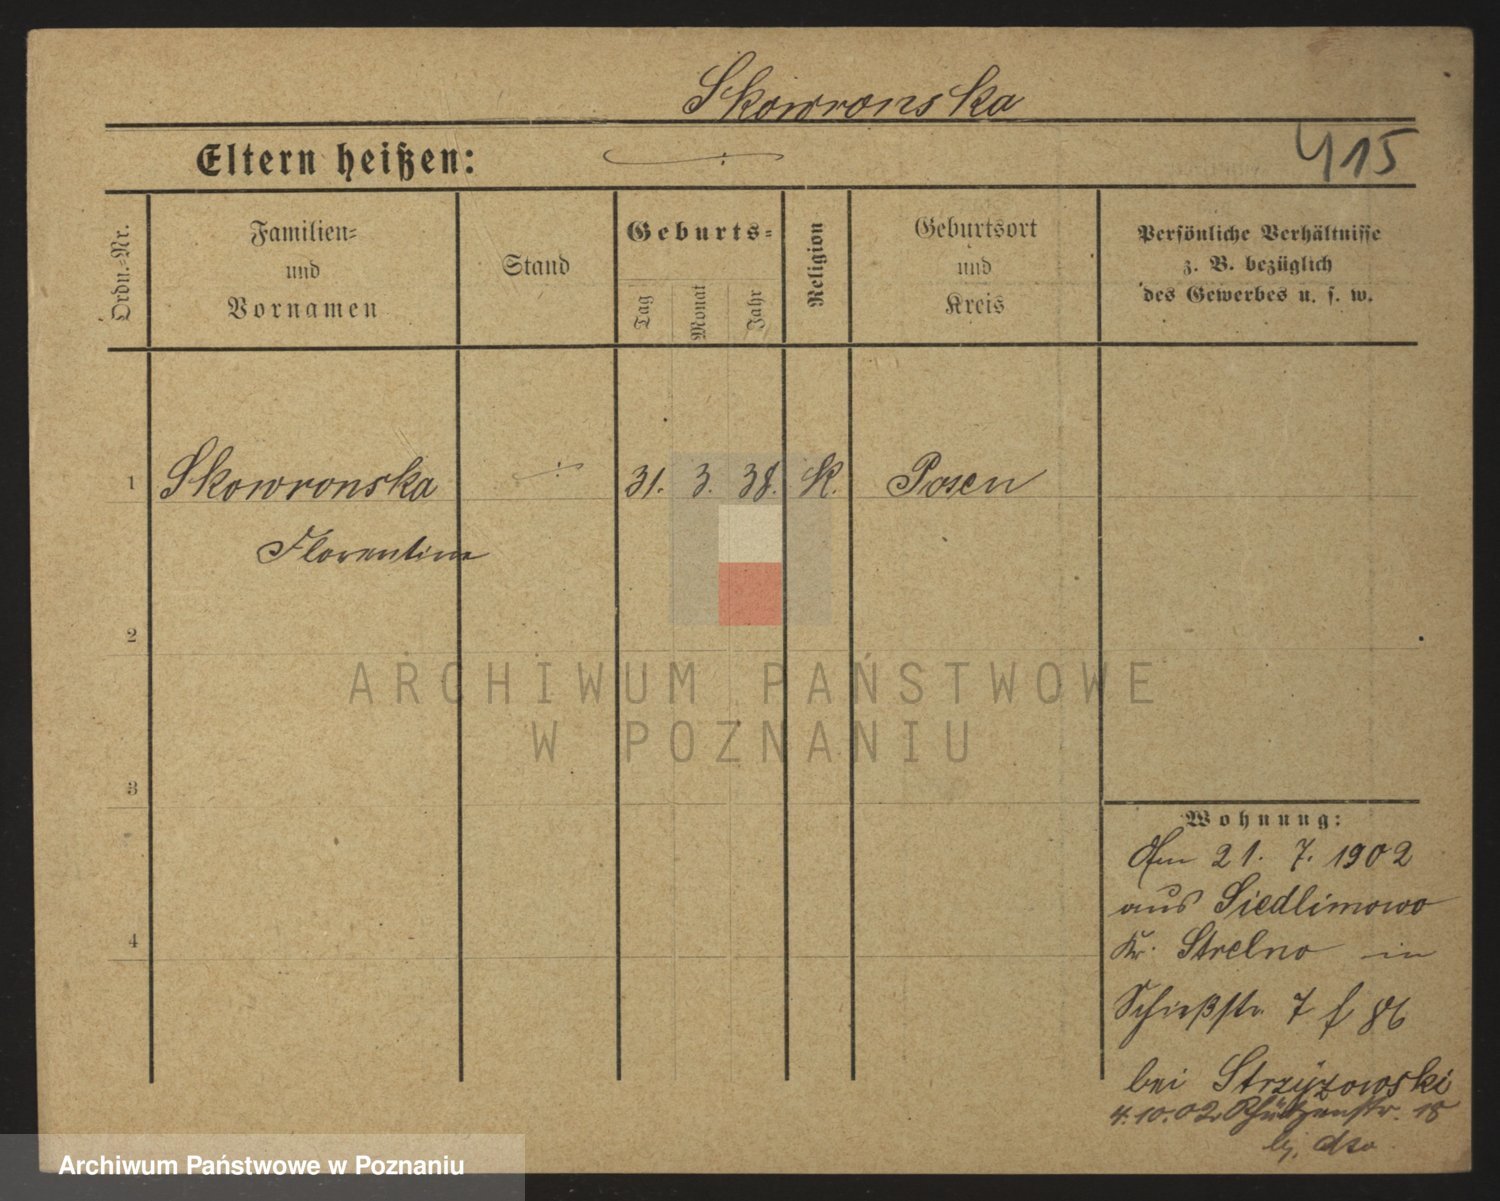 Skowronska
Eltern heißen: ÷ 415
Ordn.=Nr.
Familien=
und
Vornamen
Stand
Geburts=
Tag
Monat
Jahr
Religion
Geburtsort
und
Kreis
Persönliche Verhältnisse
z. B. bezüglich
des Gewerbes u. s. w.
1 Skowronska ÷ 31. 3. 38. K. Posen
Florentine
2
3
4
Wohnung:
Am 21. 7. 1902
aus Siedlimowo
Kr. Strelno in
Schießstr 7 f 86
bei Strzyzowski
4.10.02 Schützenstr. 18
bei dso
ARCHIWUM PAŃSTWOWE
W POZNANIU
Archiwum Państwowe w Poznaniu